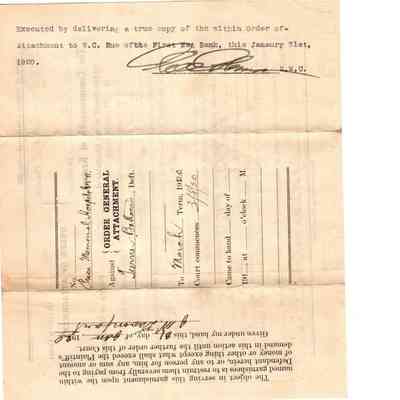 Executed by delivering a true copy of the within Order of-
Attachment to W.C. Rue of the First Nat Bank, this January 31st,
1920.
S.W.C.
No.
Memorial Hospital
Against
ORDER GENERAL
ATTACHMENT.
Deft.
To March Term, 1920
Court commences 3/8/20
Came to hand day of
191 at o'clock M.
The object in serving this garnishment upon the within
named garnishees is to restrain them severally from paying to the
Defendant herein, or to any person for him, any sum or amount
of money or other thing except what shall exceed the Plaintiff's
demand in this action until the further order of this Court.
Given under my hand, this day of 1920